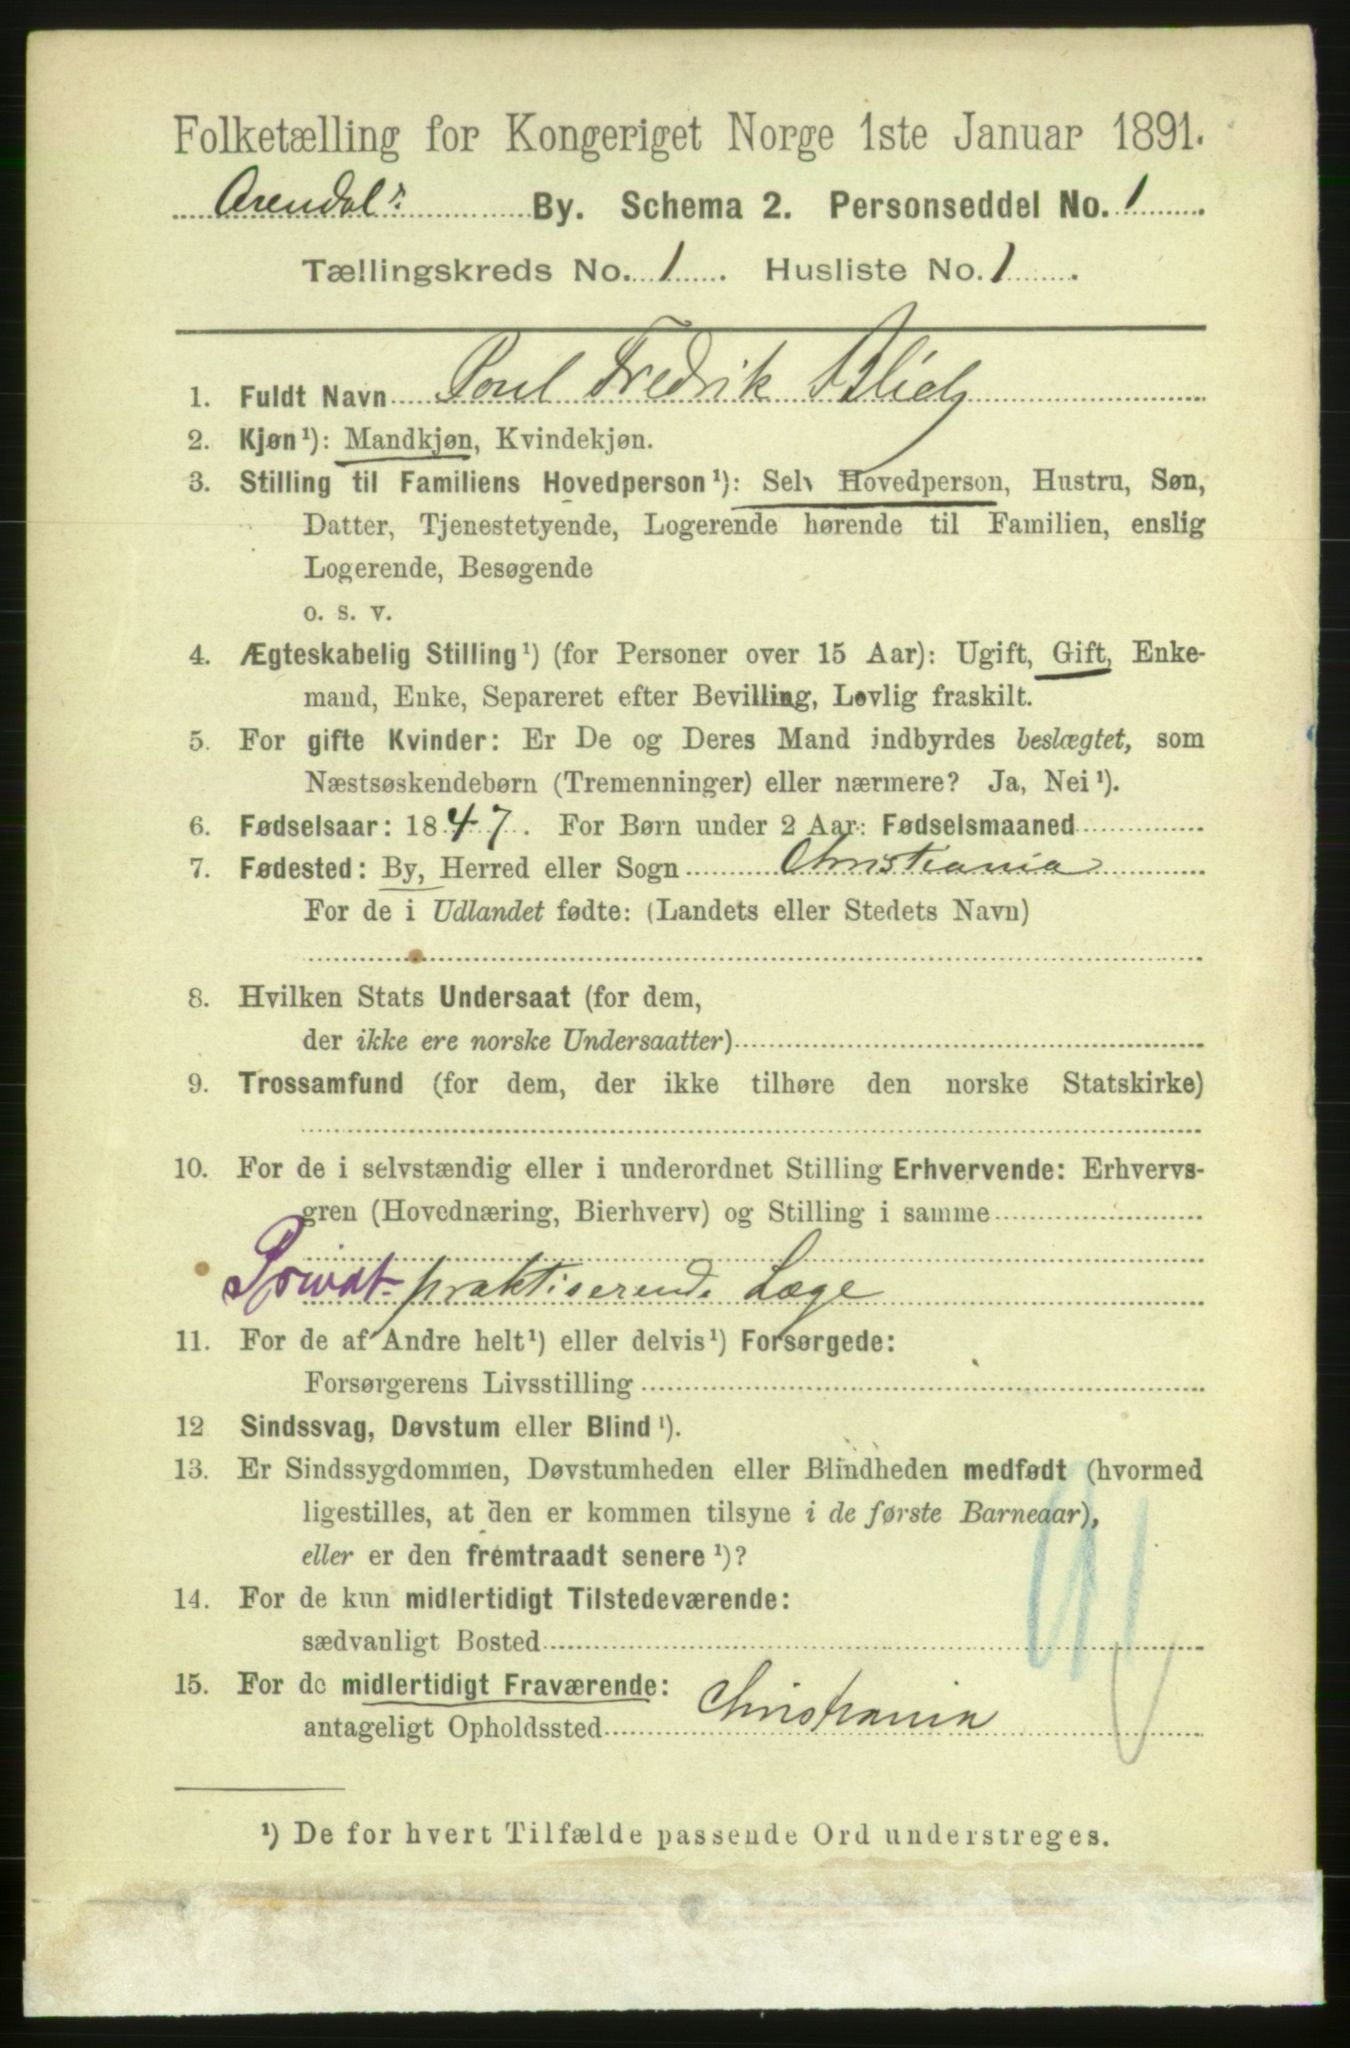 Folketælling for Kongeriget Norge 1ste Januar 1891.
Arendals By. Schema 2. Personseddel No. 1
Tællingskreds No. 1. Husliste No. 1.
1. Fuldt Navn Poul Fredrik
2. Kjøn¹): Mandkjøn, Kvindekjøn.
3. Stilling til Familiens Hovedperson¹): Selv Hovedperson, Hustru, Søn,
Datter, Tjenestetyende, Logerende hørende til Familien, enslig
Logerende, Besøgende
o. s. v.
4. Ægteskabelig Stilling¹) (for Personer over 15 Aar): Ugift, Gift, Enke-
mand, Enke, Separeret efter Bevilling, Lovlig fraskilt.
5. For gifte Kvinder: Er De og Deres Mand indbyrdes beslægtet, som
Næstsøskendebørn (Tremenninger) eller nærmere? Ja, Nei¹).
6. Fødselsaar: 1847. For Børn under 2 Aar: Fødselsmaaned
7. Fødested: By, Herred eller Sogn Christiania
For de i Udlandet fødte: (Landets eller Stedets Navn)
8. Hvilken Stats Undersaat (for dem,
der ikke ere norske Undersaatter)
9. Trossamfund (for dem, der ikke tilhøre den norske Statskirke)
10. For de i selvstændig eller i underordnet Stilling Erhvervende: Erhvervs-
gren (Hovednæring, Bierhverv) og Stilling i samme
Privat praktiserende Læge
11. For de af Andre helt¹) eller delvis¹) Forsørgede:
Forsørgerens Livsstilling
12 Sindssvag, Døvstum eller Blind¹).
13. Er Sindssygdommen, Døvstumheden eller Blindheden medfødt (hvormed
ligestilles, at den er kommen tilsyne i de første Barneaar),
eller er den fremtraadt senere¹)?
14. For de kun midlertidigt Tilstedeværende:
sædvanligt Bosted
15. For de midlertidigt Fraværende:
antageligt Opholdssted Christiania
¹) De for hvert Tilfælde passende Ord understreges.